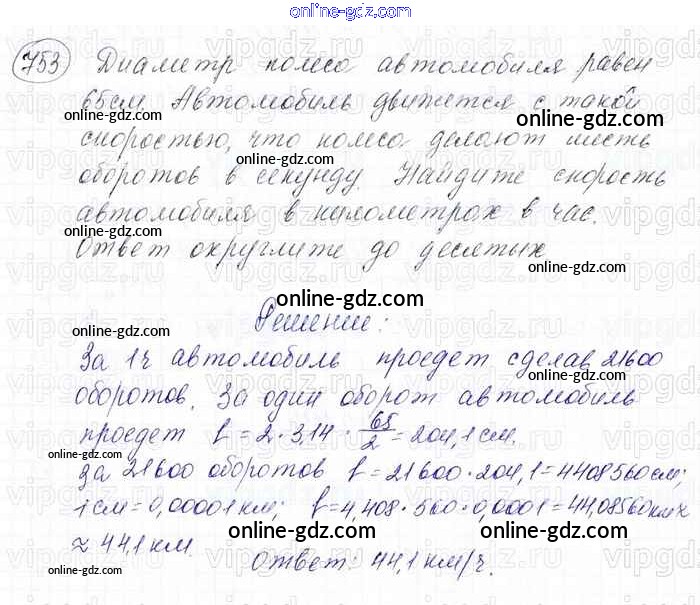 online-gdz.com
753 Диаметр колеса автомобиля равен
65см. Автомобиль движется с такой
online-gdz.com
скоростью, что колеса делают шесть
online-gdz.com
оборотов в секунду. Найдите скорость
автомобиля в километрах в час.
online-gdz.com
Ответ округлите до десятых
online-gdz.com
online-gdz.com
Решение:
За 1ч автомобиль проедет сделав 21600
online-gdz.com
оборотов. За один оборот автомобиль
проедет l = 2 · 3,14 · 65/2 = 204,1 см.
online-gdz.com
За 21600 оборотов l = 21600 · 204,1 = 4408560 см;
online-gdz.com
1см = 0,00001 км; l = 4,408 · 560 · 0,0001 = 44,08560км ≈
online-gdz.com
≈ 44,1 км.
Ответ: 44,1 км/ч.
online-gdz.com
online-gdz.com